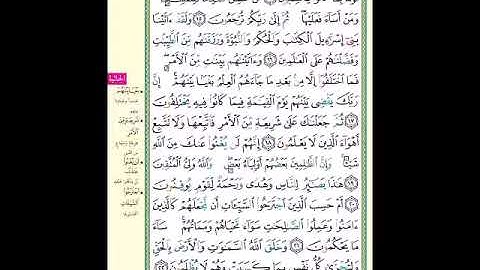 وَمَنْ أَسَآءَ فَعَلَيْهَا ۖ ثُمَّ إِلَىٰ رَبِّكُمْ تُرْجَعُونَ ١٥ وَلَقَدْ ءَاتَيْنَا
بَنِىٓ إِسْرَٰٓءِيلَ ٱلْكِتَٰبَ وَٱلْحُكْمَ وَٱلنُّبُوَّةَ وَرَزَقْنَٰهُم مِّنَ ٱلطَّيِّبَٰتِ
وَفَضَّلْنَٰهُمْ عَلَى ٱلْعَٰلَمِينَ ١٦ وَءَاتَيْنَٰهُم بَيِّنَٰتٍ مِّنَ ٱلْأَمْرِ ۖ
فَمَا ٱخْتَلَفُوٓا۟ إِلَّا مِنۢ بَعْدِ مَا جَآءَهُمُ ٱلْعِلْمُ بَغْيًۢا بَيْنَهُمْ ۚ إِنَّ
رَبَّكَ يَقْضِى بَيْنَهُمْ يَوْمَ ٱلْقِيَٰمَةِ فِيمَا كَانُوا۟ فِيهِ يَخْتَلِفُونَ
١٧ ثُمَّ جَعَلْنَٰكَ عَلَىٰ شَرِيعَةٍ مِّنَ ٱلْأَمْرِ فَٱتَّبِعْهَا وَلَا تَتَّبِعْ
أَهْوَآءَ ٱلَّذِينَ لَا يَعْلَمُونَ ١٨ إِنَّهُمْ لَن يُغْنُوا۟ عَنكَ مِنَ ٱللَّهِ
شَيْـًٔا ۚ وَإِنَّ ٱلظَّٰلِمِينَ بَعْضُهُمْ أَوْلِيَآءُ بَعْضٍ ۖ وَٱللَّهُ وَلِىُّ ٱلْمُتَّقِينَ
١٩ هَٰذَا بَصَٰٓئِرُ لِلنَّاسِ وَهُدًى وَرَحْمَةٌ لِّقَوْمٍ يُوقِنُونَ
٢٠ أَمْ حَسِبَ ٱلَّذِينَ ٱجْتَرَحُوا۟ ٱلسَّيِّـَٔاتِ أَن نَّجْعَلَهُمْ كَٱلَّذِينَ
ءَامَنُوا۟ وَعَمِلُوا۟ ٱلصَّٰلِحَٰتِ سَوَآءً مَّحْيَاهُمْ وَمَمَاتُهُمْ ۚ سَآءَ
مَا يَحْكُمُونَ ٢١ وَخَلَقَ ٱللَّهُ ٱلسَّمَٰوَٰتِ وَٱلْأَرْضَ بِٱلْحَقِّ
وَلِتُجْزَىٰ كُلُّ نَفْسٍۭ بِمَا كَسَبَتْ وَهُمْ لَا يُظْلَمُونَ ٢٢
الجاثية